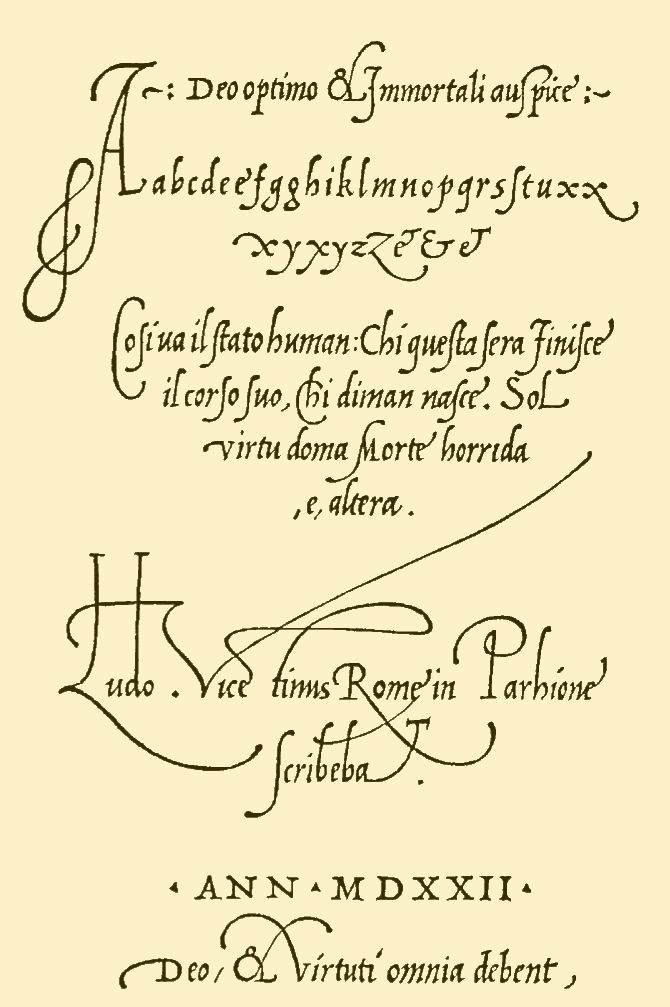 ~: Deo optimo & Immortali auſpice :~
A a b c d e e f g g h i k l m n o p q r s ſ t u x x
x y x y z Z & & &
Coſi va il ſtato human: Chi queſta ſera finiſce
il corſo ſuo, Chi diman naſce. Sol
virtu doma Morte horrida
, e, altera .
Ludo . Vicentinus Rome in Parhione
ſcribebat .
· ANN · MDXXII ·
Deo, & Virtuti omnia debent,